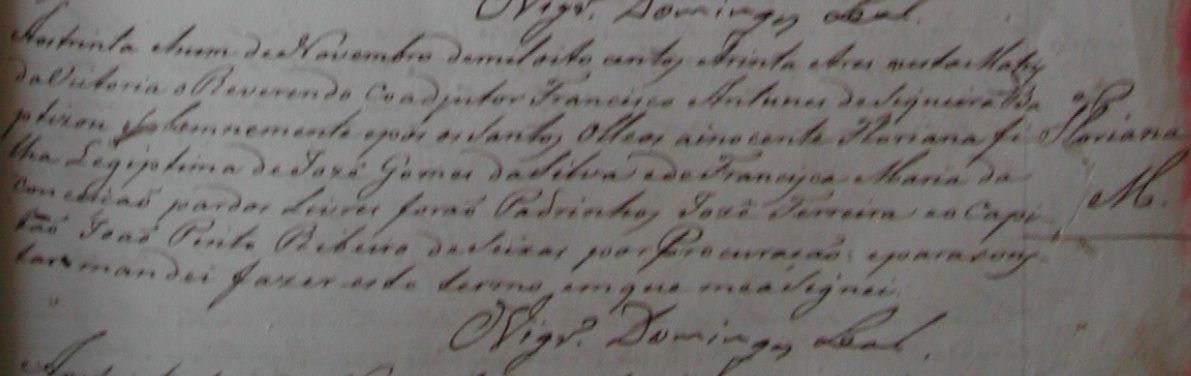 Vigr.º Domingos Leal.
Aos trinta ehum de Novembro demiloito centos etrinta etres nesta Matris
da Victoria o Reverendo Coadjutor Francisco Antunes de Siqueira Ba
ptizou solemnemente epôs os Santos Olleos ainocente Floriana fi
lha Legiptima de Jozé Gomes da Silva ede Francisca Maria da
conceicaõ pardos Livres foraõ Padrinhos Jozé Ferreira eo Capi
taõ Joaõ Pinto Ribeiro de Seixas por Procuraçaõ, eparacons
tar mandei fazer este termo, emque meaSignei.
Vigr.º Domingos Leal.
Floriana
M.